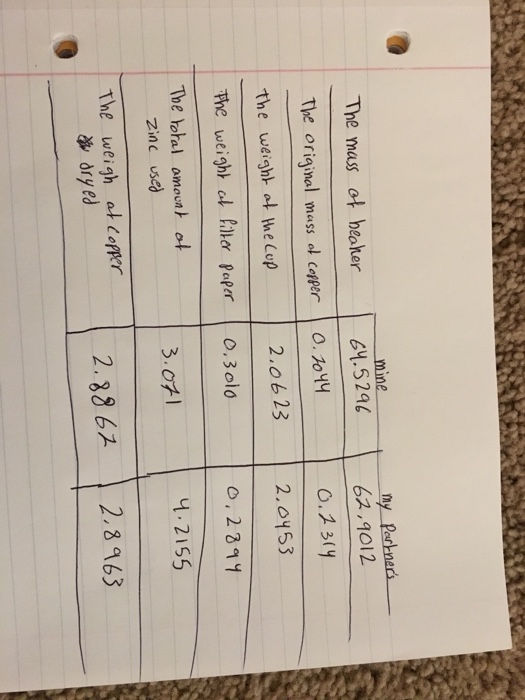 mine my Partner's
The mass of beaker 64.5296 62.9012
The original mass of copper 0.2044 0.2314
the weight of the Cup 2.0623 2.0453
The weight of filter paper 0.3010 0.2894
The total amount of
zinc used 3.071 4.2155
The weigh of copper
dryed 2.8862 2.8963